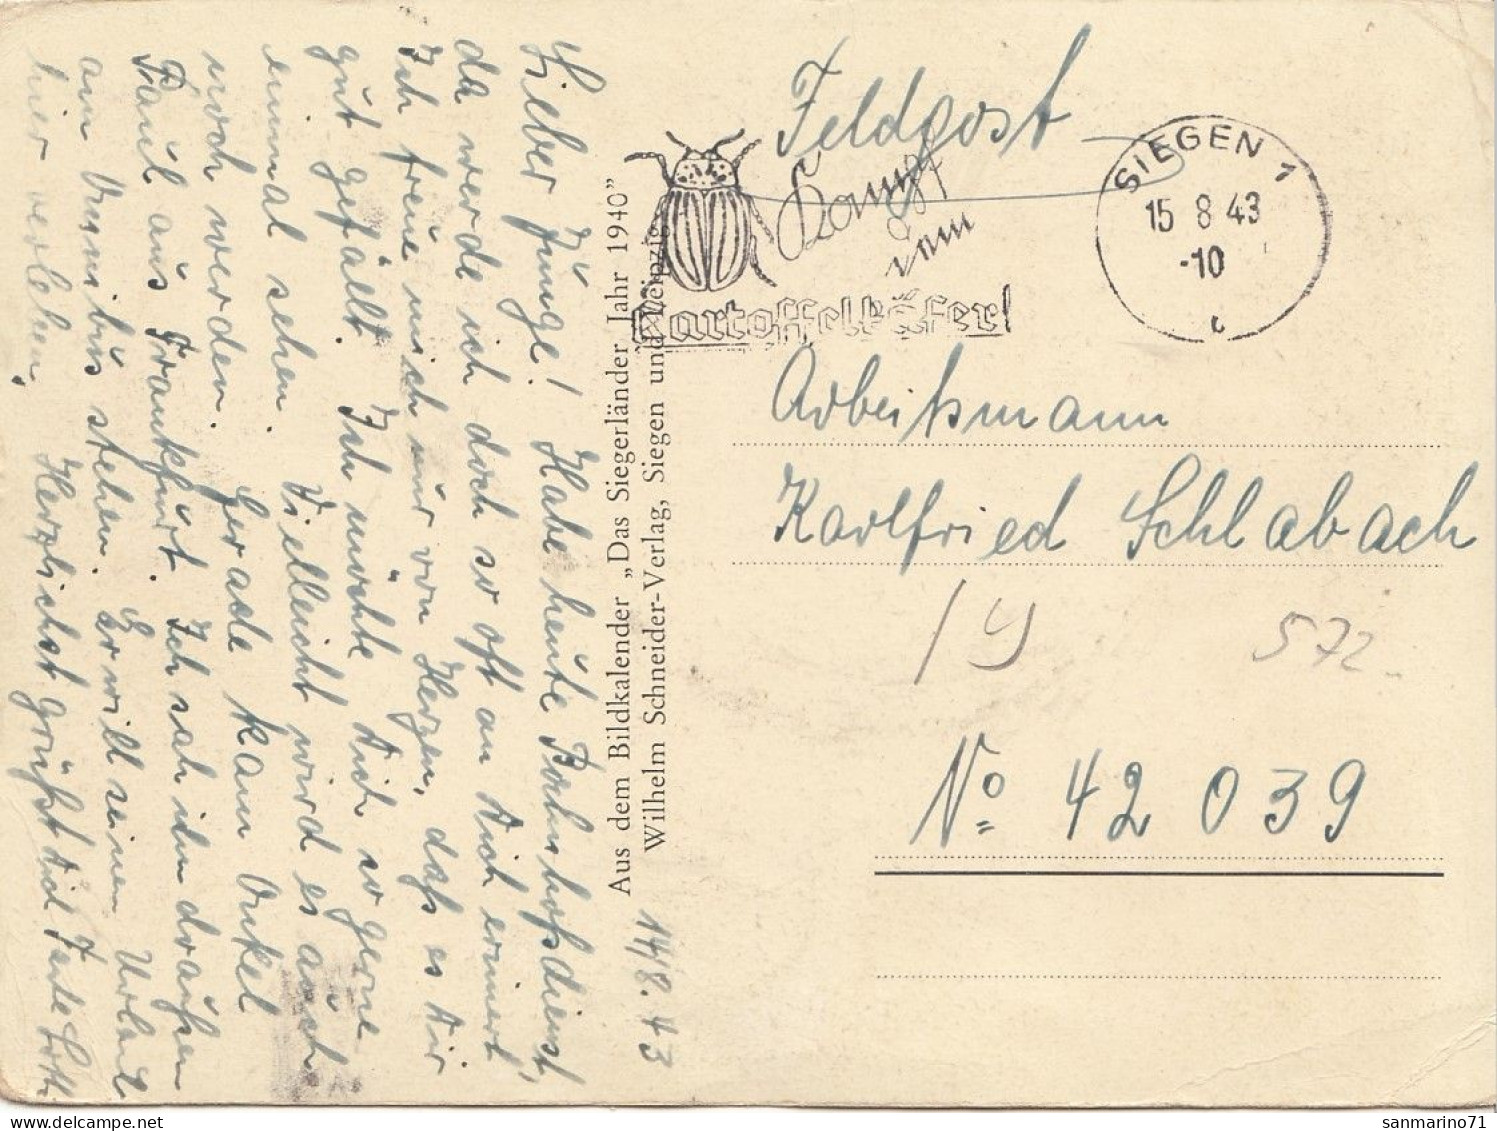 14/8.43
Lieber Junge! Habe heute Bahnhofsdienst,
da werde ich doch so oft an Dich erinnert
Ich freue mich nur von Herzen, daß es Dir
gut gefällt. Ich möchte Dich so gerne
einmal sehen. Vielleicht wird es auch
noch werden. Gerade kam Onkel
Paul aus Frankfurt. Ich sah ihn draußen
am Omnibus stehen. Er will seinen Urlaub
hier verleben. Herzlichst grüßt Dich Tante
Aus dem Bildkalender „Das Siegerländer Jahr 1940”
Wilhelm Schneider-Verlag, Siegen und Leipzig
Feldpost
Kampf
dem
Kartoffelkäfer!
SIEGEN 1
15 8 43
-10
c
Arbeitsmann
Karlfried Schlabach
572
No 42 039
sanmarino71